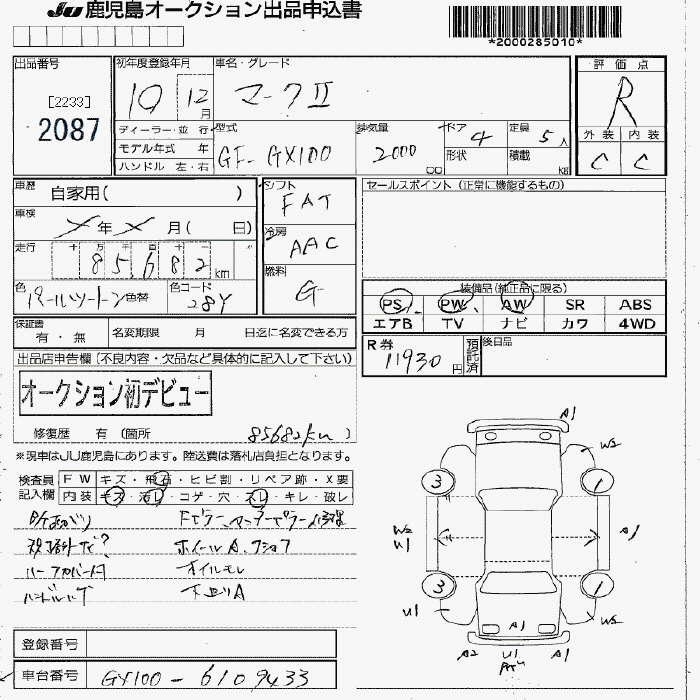 JU 鹿児島オークション出品申込書
*2000285010*
出品番号
[2233]
2087
初年度登録年月
10 12月
車名・グレード
マークⅡ
評価点
R
ディーラー・並行
モデル年式 年
ハンドル 左・右
型式
GF-GX100
排気量
2000
cc
ドア 4
形状
定員 5人
積載 kg
外装 内装
C C
車歴
自家用( )
車検
年 月( 日)
走行
十 万 千 百 十 一
85,682 km
色
パールツートン 色替
色コード
28Y
シフト
FAT
冷房
AAC
燃料
G
セールスポイント (正常に機能するもの)
装備品(純正品に限る)
PS PW AW SR ABS
エアB TV ナビ カワ 4WD
保証書
有・無
名変期限 月 日迄に名変できる方
R券
11930円
預託済
後日品
出品店申告欄(不良内容・欠品など具体的に記入して下さい)
オークション初デビュー
修復歴 有 (箇所 85682km )
※現車はJU鹿児島にあります。陸送費は落札店負担となります。
検査員記入欄
FW キズ・飛石・ヒビ割・リペア跡・X要
内装 キズ・汚レ・コゲ・穴・スレ・キレ・破レ
ホイールA
オイルモレ
下廻りA
A1
W2
3
1
W2
U1
A1
3
1
U1
W2
A1
A2
U1
A1
登録番号
車台番号
GX100-6109433